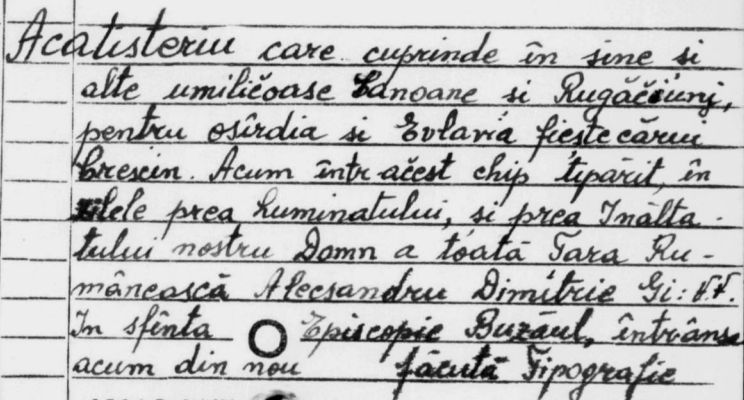 Acatisteriu care cuprinde în sine si
alte umiličoase Canoane si Rugăčiunj,
pentru osîrdia si Evlavia fieste cărui
Crescin. Acum într-ačest chip tipărit, în
zilele prea Luminatului, si prea Inălta-
tului nostru Domn a toată Tara Ru-
mânească Alecsandru Dimitrie Gi:
In sfînta Episcopie Buzăul, întrânsa
acum din nou făcută Tipografie